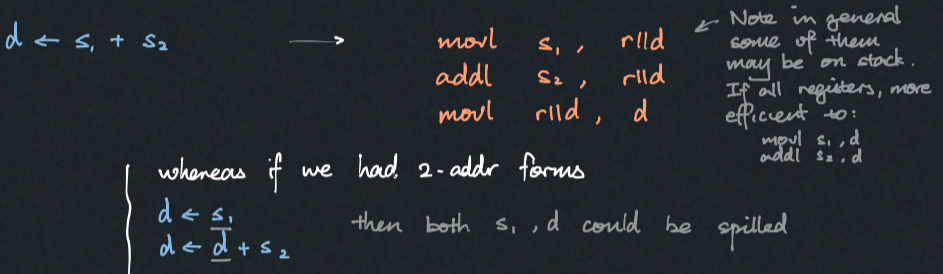 d ← s₁ + s₂ → movl s₁ , r11d
addl s₂ , r11d
movl r11d , d
← Note in general
some of them
may be on stack.
If all registers, more
efficient to:
movl s₁ , d
addl s₂ , d
whereas if we had 2-addr forms
d ← s₁
d ← d + s₂
then both s₁ , d could be spilled